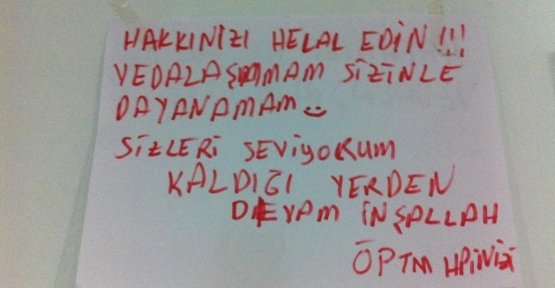 HAKKINIZI HELAL EDİN !!!
VEDALAŞMAM SİZİNLE
DAYANAMAM
SİZLERİ SEVİYORUM
KALDIĞI YERDEN
DEVAM İNŞALLAH
ÖPTM HPİNİZİ